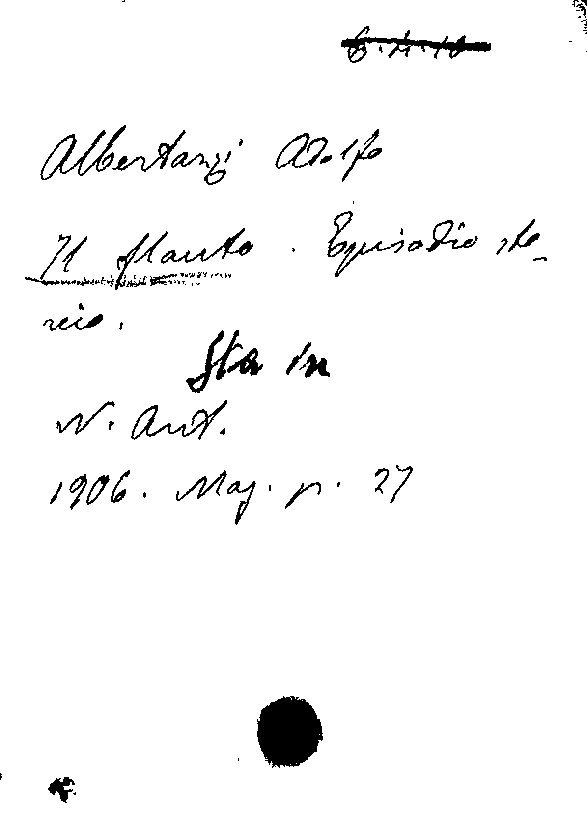 Albertazzi Adolfo
Il flauto. Episodio sto-
rico.
Sta in
N. Ant.
1906. Mag. p. 27